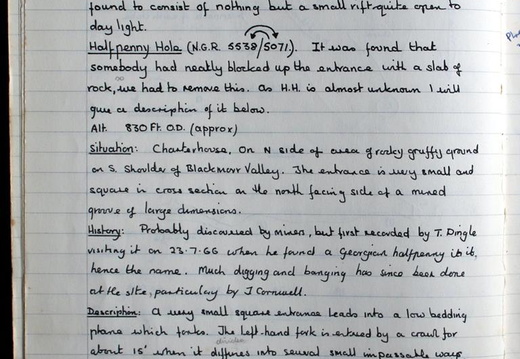 found to consist of nothing but a small rift quite open to
day light.
Halfpenny Hole (N.G.R. 5538/5071). It was found that
somebody had neatly blocked up the entrance with a slab of
rock, we had to remove this. As H.H. is almost unknown I will
give a description of it below.
Alt. 830 Ft. O.D. (approx)
Situation: Charterhouse, On N side of area of rocky gruffy ground
on S. Shoulder of Blackmoor Valley. The entrance is very small and
square in cross section on the north facing side of a mined
groove of large dimensions.
History: Probably discovered by miners, but first recorded by T. Dingle
visiting it on 23.7.66 when he found a Georgian halfpenny in it,
hence the name. Much digging and banging has since been done
at the site, particulary by J Cornwell.
Description: A very small square entrance leads into a low bedding
plane which forks. The left hand fork is entered by a crawl for
divides
about 15' when it diffuses into several small impassable ways